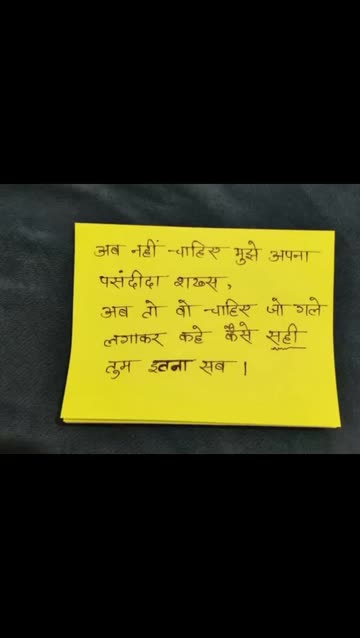 अब नहीं चाहिए मुझे अपना
पसंदीदा शख्स,
अब तो वो चाहिए जो गले
लगाकर कहे कैसे सही
तुम इतना सब ।